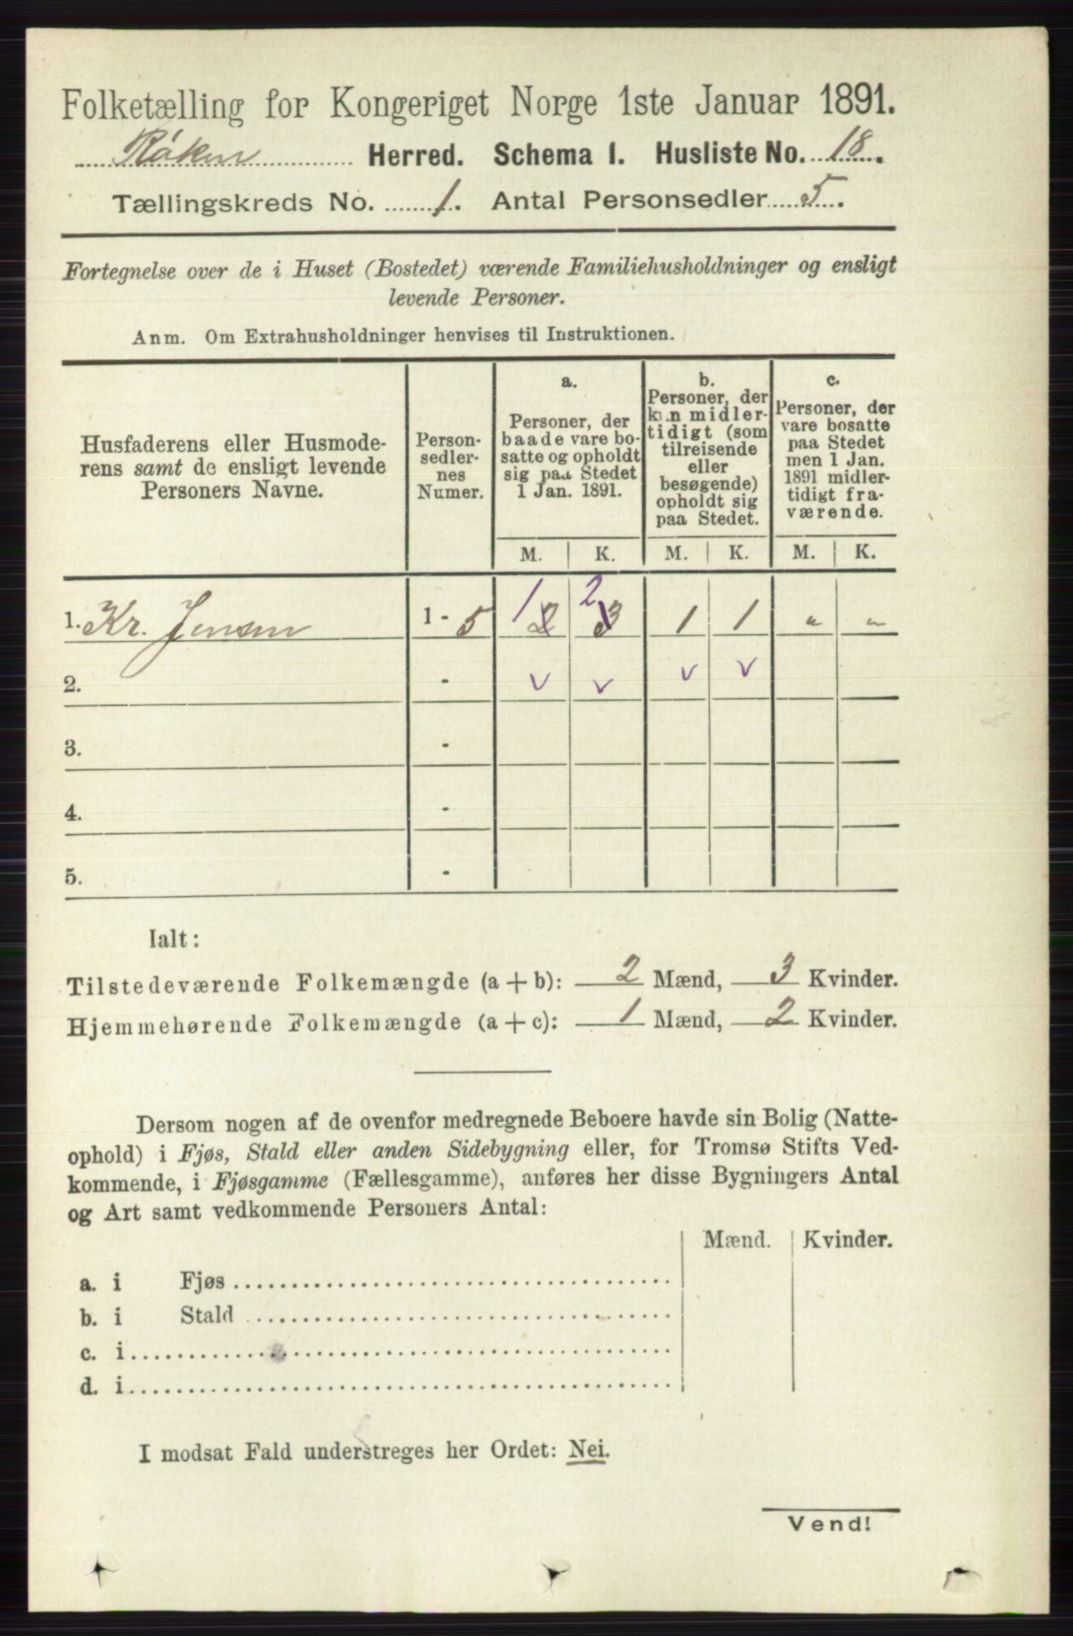 Folketælling for Kongeriget Norge 1ste Januar 1891.
Røken Herred. Schema I. Husliste No. 18.
Tællingskreds No. 1. Antal Personsedler 5.
Fortegnelse over de i Huset (Bostedet) værende Familiehusholdninger og ensligt
levende Personer.
Anm. Om Extrahusholdninger henvises til Instruktionen.
Husfaderens eller Husmode-
rens samt de ensligt levende
Personers Navne.
Person-
sedler-
nes
Numer.
a.
Personer, der
baade vare bo-
satte og opholdt
sig paa Stedet
1 Jan. 1891.
b.
Personer, der
kun midler-
tidigt (som
tilreisende
eller
besøgende)
opholdt sig
paa Stedet.
c.
Personer, der
vare bosatte
paa Stedet
men 1 Jan.
1891 midler-
tidigt fra-
værende.
M. K. M. K. M. K.
1. Kr. Jensen 1 - 5 1 2 2 3 1 1 " "
2. - v v v v
3. -
4. -
5. -
Ialt:
Tilstedeværende Folkemængde (a + b): 2 Mænd, 3 Kvinder.
Hjemmehørende Folkemængde (a + c): 1 Mænd, 2 Kvinder.
Dersom nogen af de ovenfor medregnede Beboere havde sin Bolig (Natte-
ophold) i Fjøs, Stald eller anden Sidebygning eller, for Tromsø Stifts Ved-
kommende, i Fjøsgamme (Fællesgamme), anføres her disse Bygningers Antal
og Art samt vedkommende Personers Antal:
Mænd. Kvinder.
a. i Fjøs
b. i Stald
c. i
d. i
I modsat Fald understreges her Ordet: Nei.
Vend!